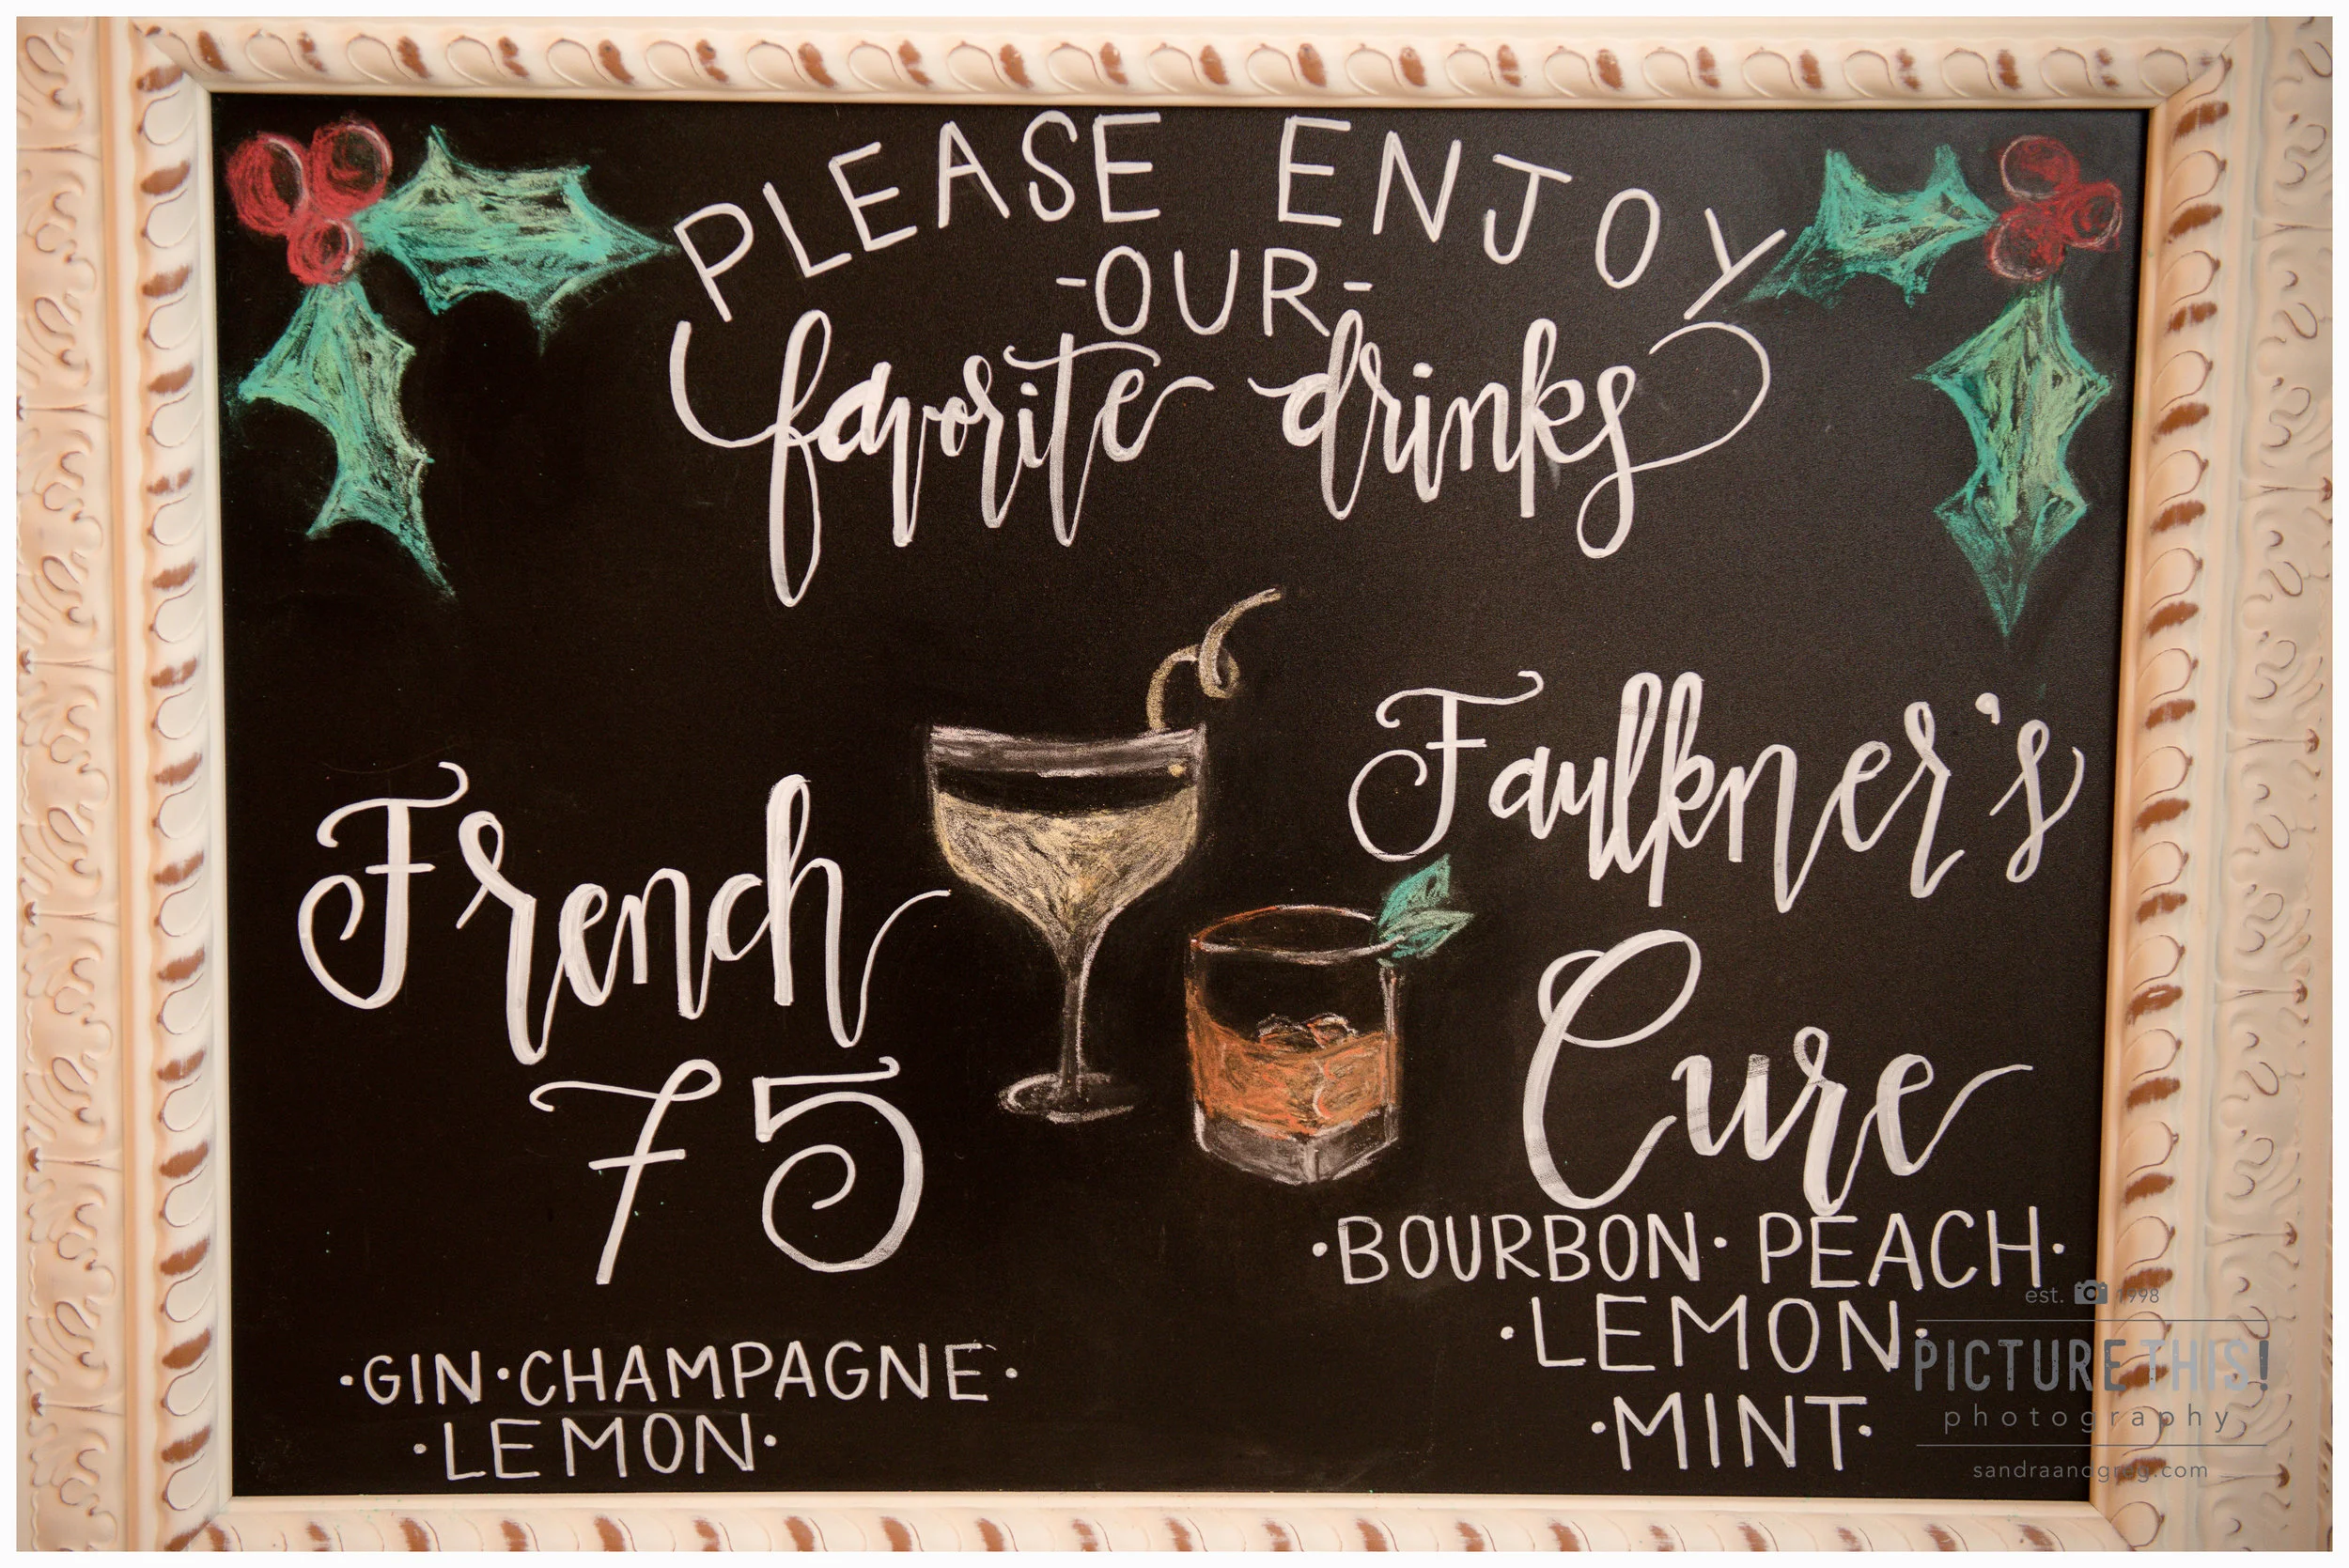 PLEASE ENJOY
-OUR-
favorite drinks
French
75
·GIN·CHAMPAGNE·
·LEMON·
Faulkner's
Cure
·BOURBON·PEACH·
·LEMON·
·MINT·
est. 1998
PICTURE THIS!
photography
sandraandgreg.com